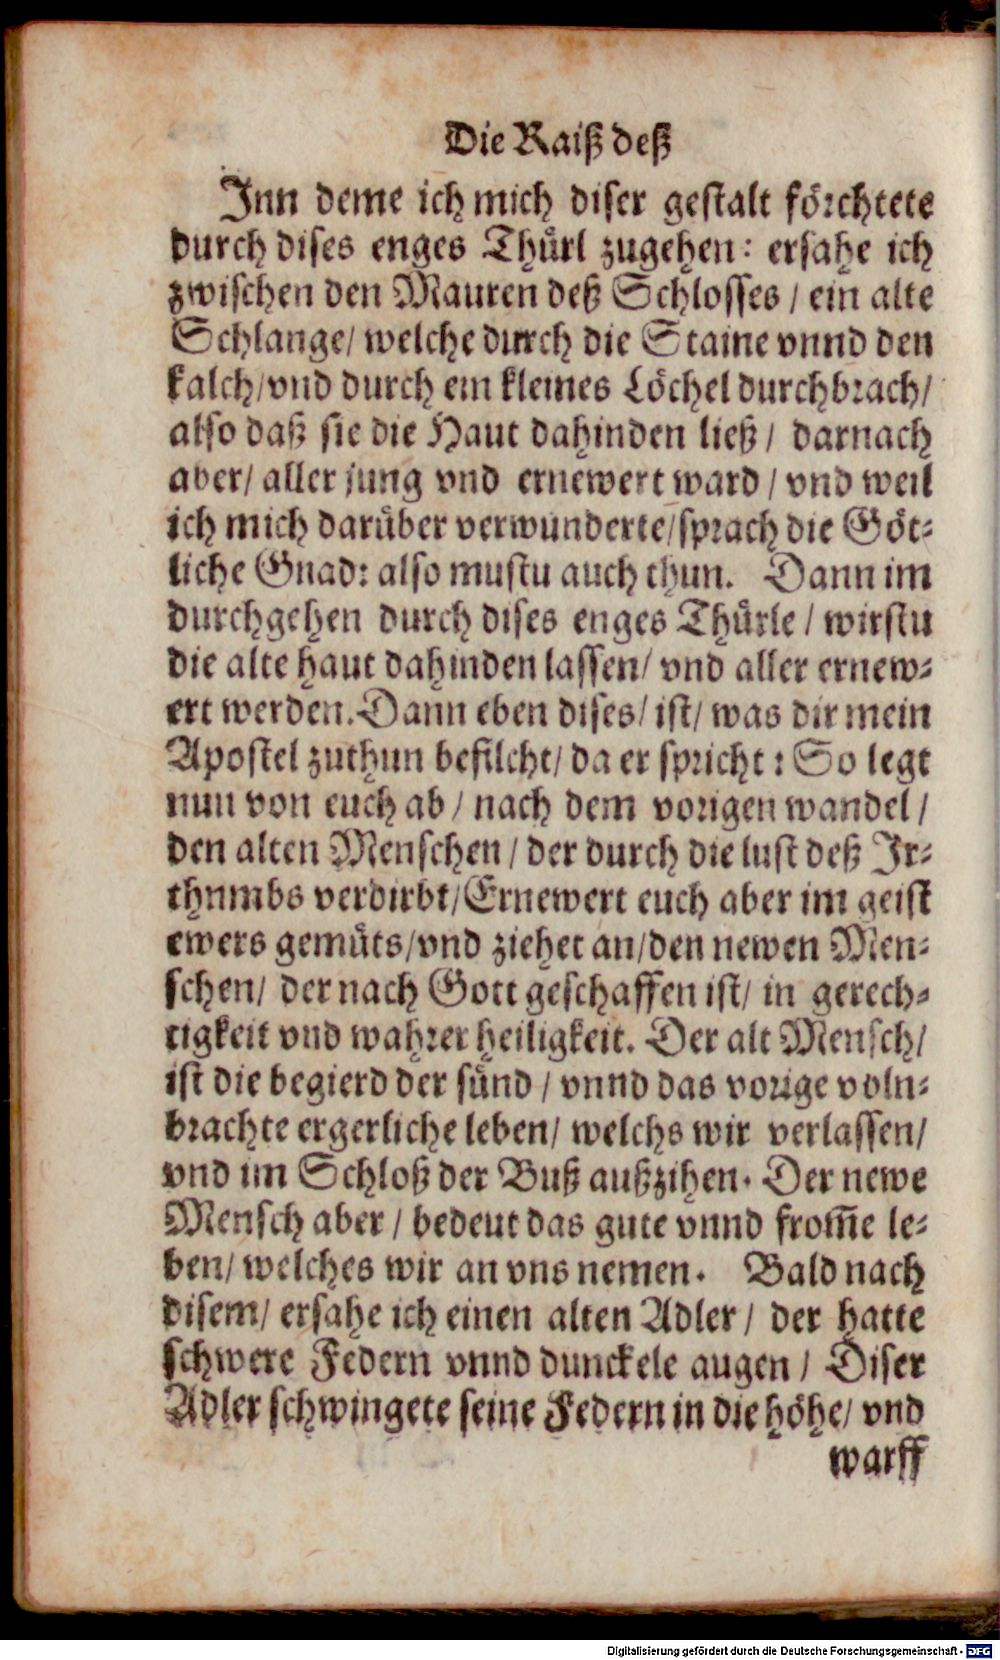 Die Raiß deß
Inn deme ich mich diser gestalt förchtete
durch dises enges Thürl zugehen: ersahe ich
zwischen den Mauren deß Schlosses / ein alte
Schlange/ welche durch die Staine vnnd den
kalch/vnd durch ein kleines Löchel durchbrach/
also daß sie die Haut dahinden ließ / darnach
aber/ aller jung vnd ernewert ward / vnd weil
ich mich darüber verwunderte/sprach die Göt-
liche Gnad: also mustu auch thun. Dann im
durchgehen durch dises enges Thürle / wirstu
die alte haut dahinden lassen/ vnd aller ernew-
ert werden. Dann eben dises/ ist/ was dir mein
Apostel zuthun befilcht/ da er spricht: So legt
nun von euch ab / nach dem vorigen wandel /
den alten Menschen / der durch die lust deß Ir-
thumbs verdirbt/Ernewert euch aber im geist
ewers gemüts/vnd ziehet an/den newen Men-
schen/ der nach Gott geschaffen ist/ in gerech-
tigkeit vnd wahrer heiligkeit. Der alt Mensch/
ist die begierd der sünd / vnnd das vorige voln-
brachte ergerliche leben/ welchs wir verlassen/
vnd im Schloß der Buß außzihen. Der newe
Mensch aber / bedeut das gute vnnd from̃e le-
ben/ welches wir an vns nemen. Bald nach
disem/ ersahe ich einen alten Adler / der hatte
schwere Federn vnnd dunckele augen / Diser
Adler schwingete seine Federn in die höhe/ vnd
warff
Digitalisierung gefördert durch die Deutsche Forschungsgemeinschaft - DFG